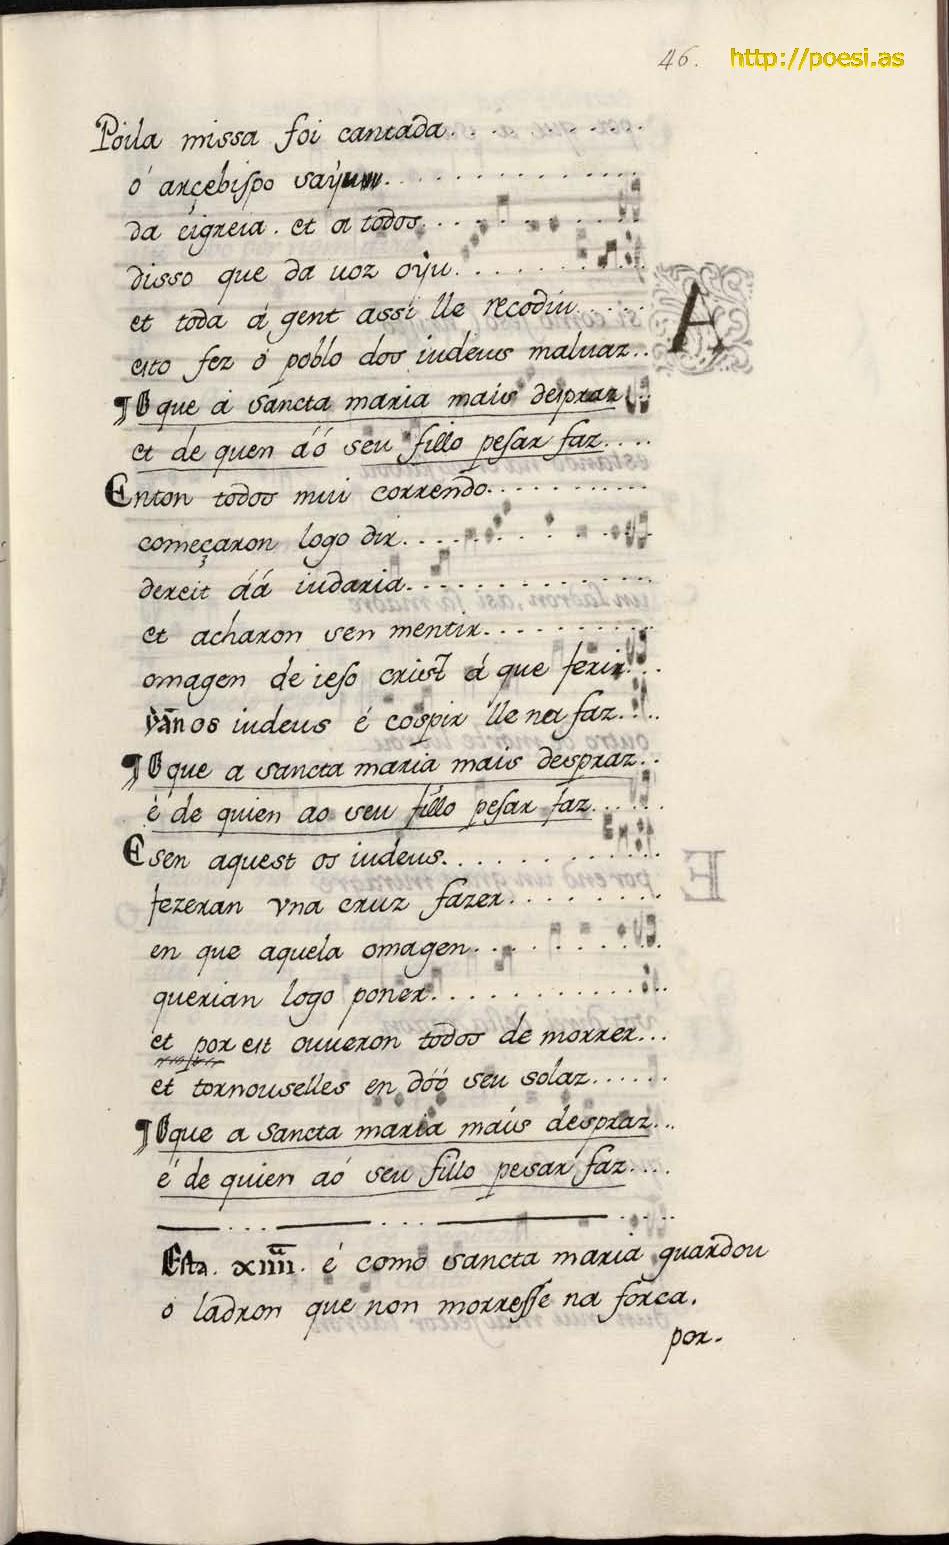 46. http://poesi.as
Poila missa foi cantada . . . . . . . . .
o arçebiſpo sayu . . . . . . . . . . . .
da eigreia . et a todos . . . . . . . . .
disso que da uoz oÿu . . . . . . . . .
et toda á gent assi lle recodiu . . . .
esto fez o poblo dos iudeus maluaz . .
¶ O que a sancta maria mais despraz
et de quen áó seu fillo peſar faz . . . .
Enton todos mui correndo . . . . . . . . . . .
começaron logo dir . . . . . . . . . . . .
dereit áá iudaria . . . . . . . . . . . .
et acharon sen mentir . . . . . . . . . .
omagen de ieſo crist á que ferir . . .
van os iudeus é cospir lle na faz . . . .
¶ O que a sancta maria mais despraz . .
é de quien ao seu fillo peſar faz . . . . . .
E sen aquest os iudeus . . . . . . . . . . . .
fezeran vna cruz fazer . . . . . . . . .
en que aquela omagen . . . . . . . . . .
querian logo poner . . . . . . . . . . . . .
et por est ouueron todos de morrer . . .
et tornouselles en dóó seu solaz . . . . . .
¶ O que a sancta maria maís despraz . . .
é de quien aó seu fillo pesar faz . . . .
Esta . xiiii . é como sancta maria guardou
o ladron que non morreſſe na forca .
por .
A